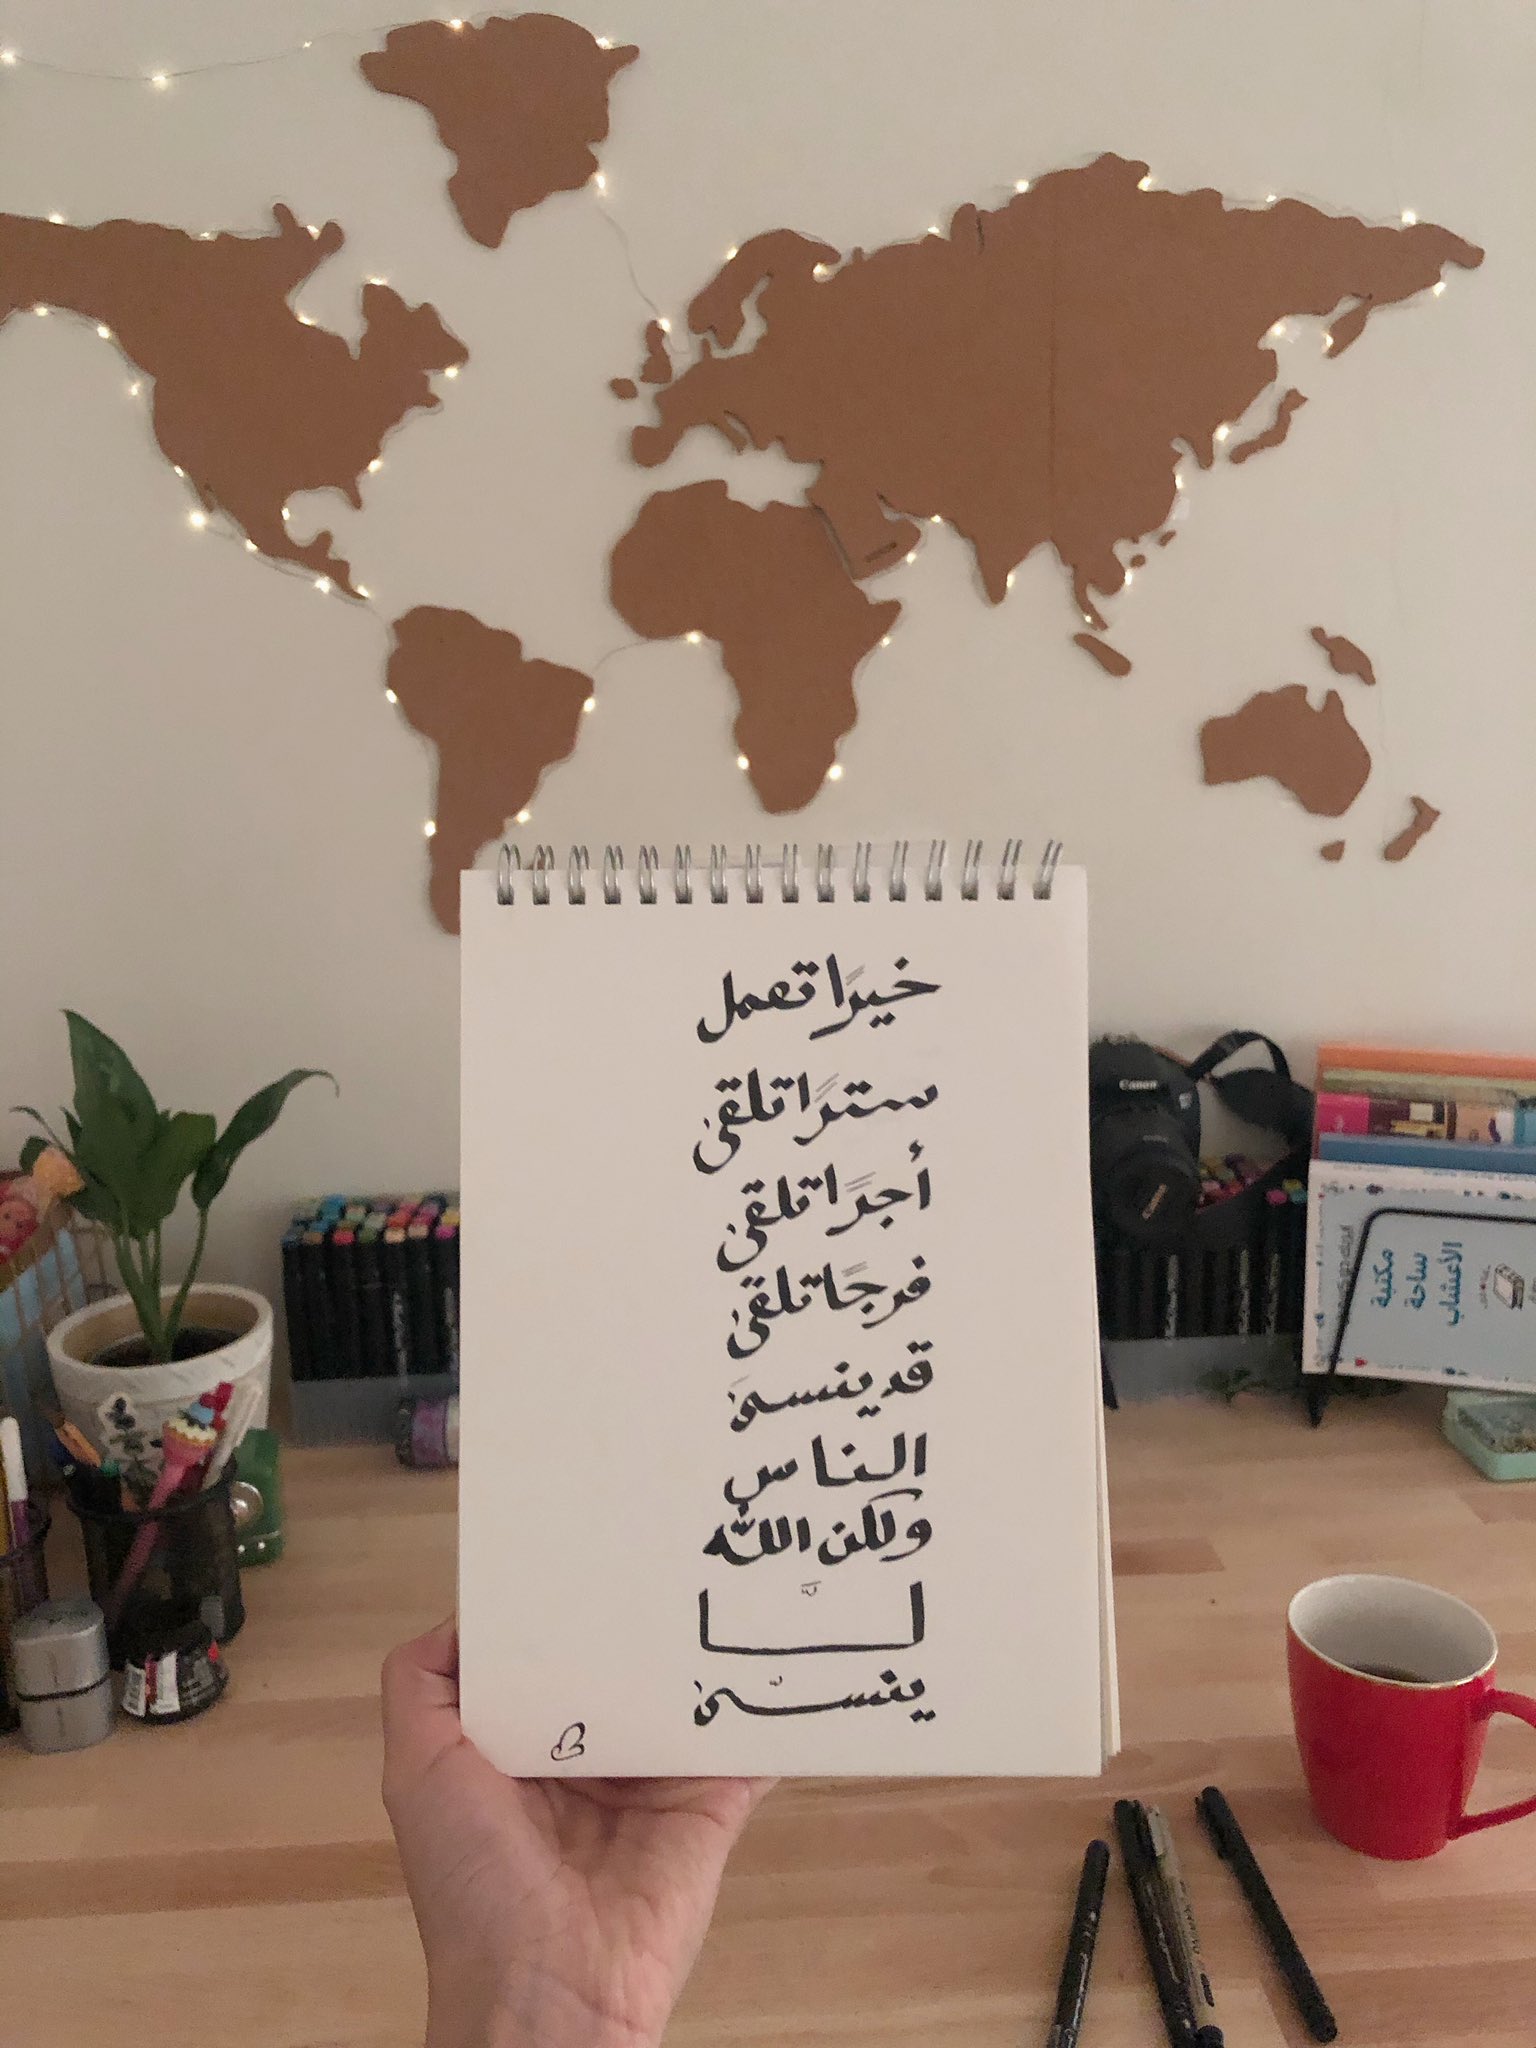 خيرًا تعمل
سترًا تلقى
أجرًا تلقى
فرجًا تلقى
قد ينسى
الناس
ولكن الله
لَّا
ينسى
Canon
مكتبة
ساحة
الأعشاب